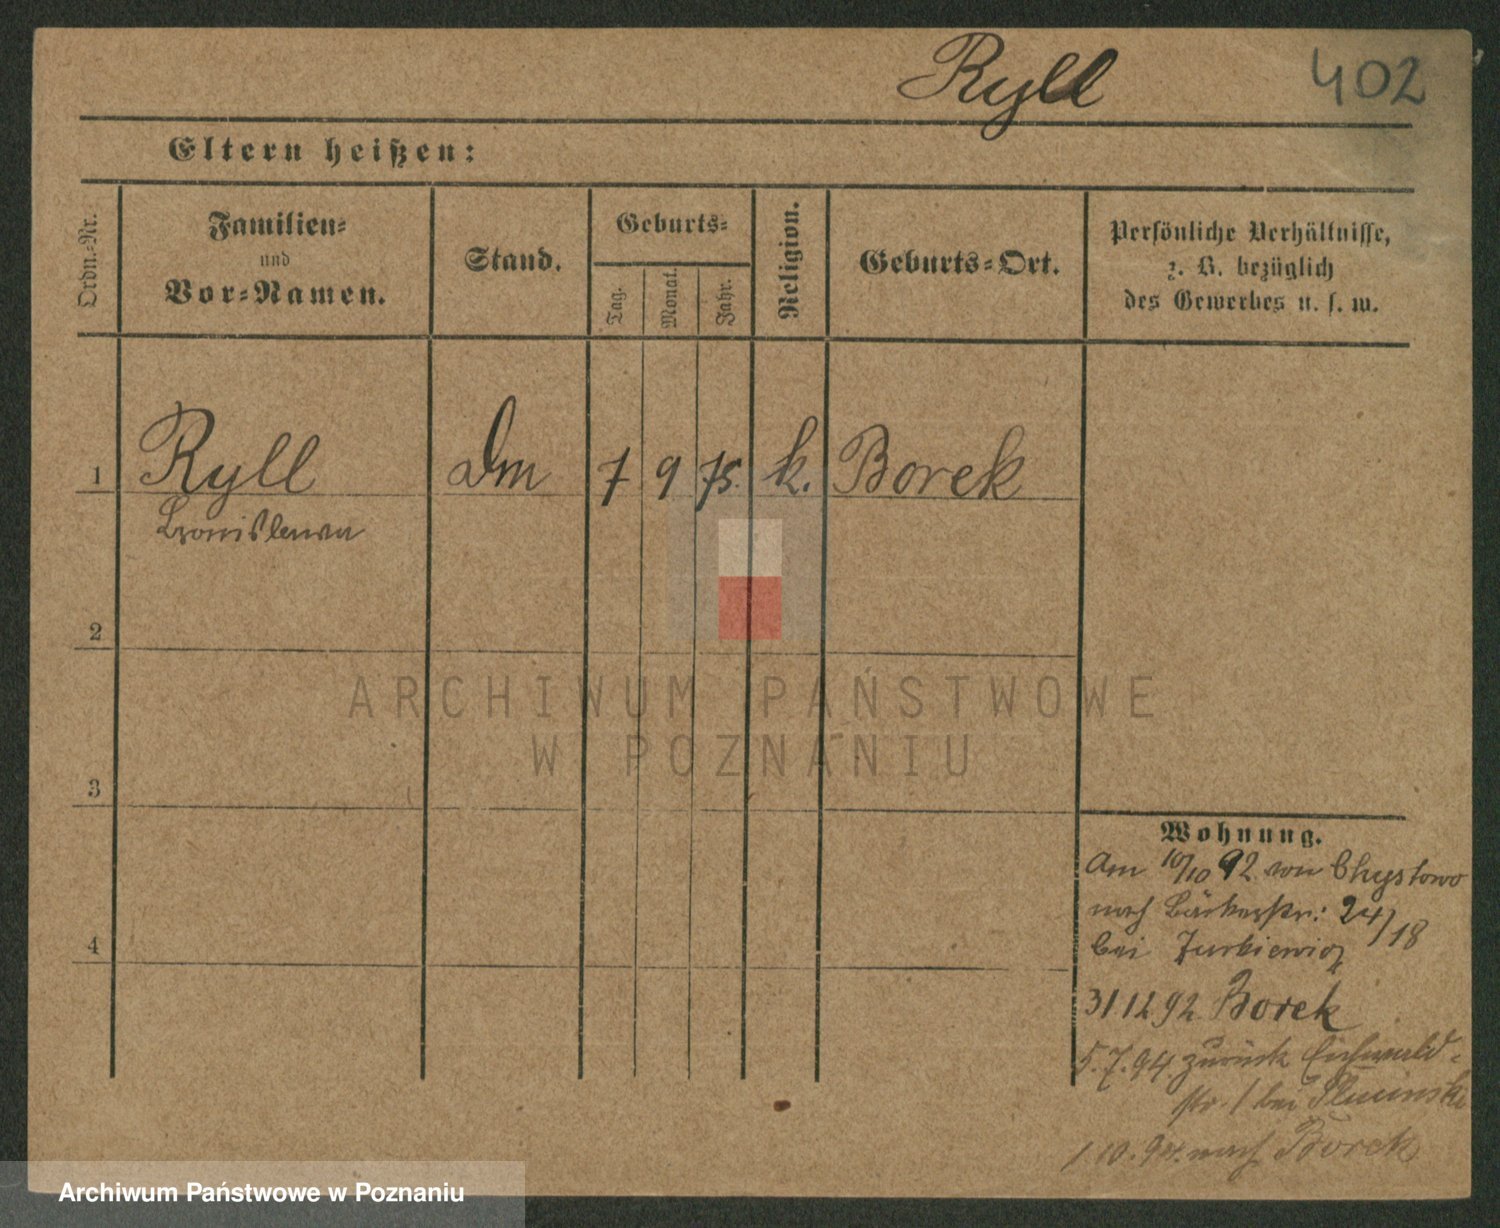 Ryll
402
Eltern heißen:
Ordn.-Nr.
Familien-
und
Vor-Namen.
Stand.
Geburts-
Tag.
Monat.
Jahr.
Religion.
Geburts-Ort.
Persönliche Verhältnisse,
z. B. bezüglich
des Gewerbes u. s. w.
1 Ryll Dm 7 9 75. k. Borek
Bronislawa
2
ARCHIWUM PAŃSTWOWE
W POZNANIU
3
Wohnung.
Am 10/10 92 von Chystowo
nach Bäckerstr: 24/18
4
bei Jurkiewicz
31 12 92 Borek
5.7.94. zurück Eichwald-
str. 1 bei
1 10. 94. nach Borek
Archiwum Państwowe w Poznaniu